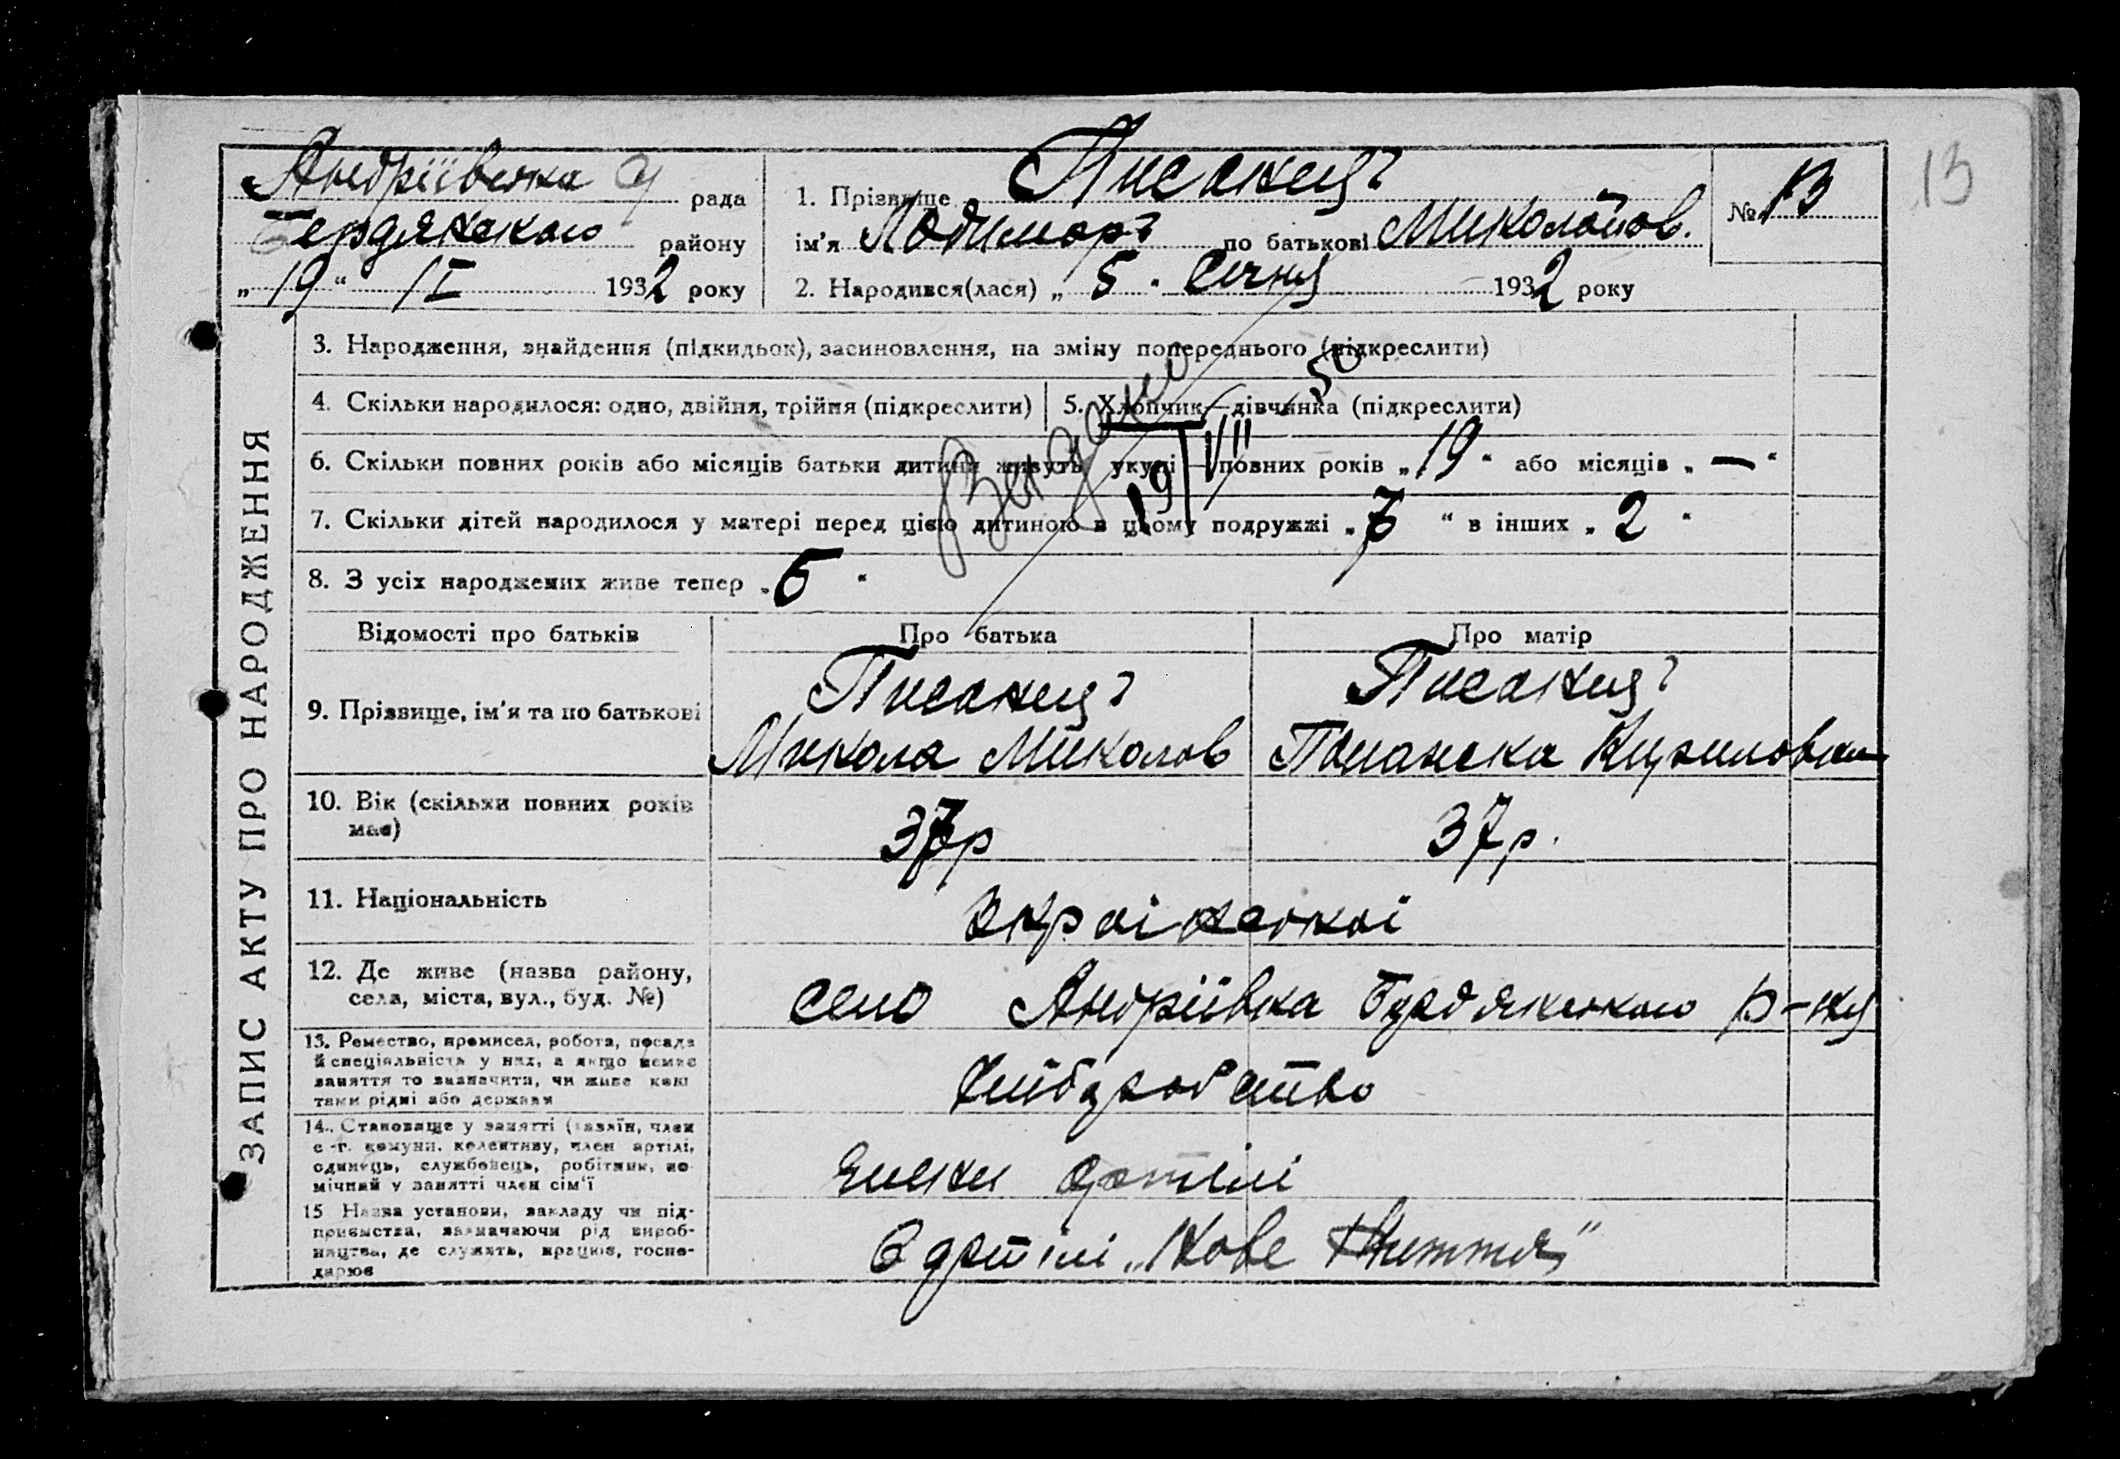 Андріївська с/ рада
Бердянського району
„ 19 “ /I 1932 року
1. Прізвище Писанець
ім'я Лодимар по батькові Миколайов.
2. Народився(лася) „ 5 „ Січня 1932 року
№ 13
13
ЗАПИС АКТУ ПРО НАРОДЖЕННЯ
3. Народження, знайдення (підкидьок), засиновлення, на зміну попереднього (підкреслити)
4. Скільки народилося: одно, двійня, трійня (підкреслити)
5. Хлопчик—дівчинка (підкреслити)
6. Скільки повних років або місяців батьки дитини живуть укупі — повних років „ 19 “ або місяців „ — “
7. Скільки дітей народилося у матері перед цією дитиною в цьому подружжі „ “ в інших „ 2 “
8. З усіх народжених живе тепер „ 5 “
Видано
19/VII 50
Відомості про батьків
Про батька
Про матір
9. Прізвище, ім'я та по батькові
Писанець
Микола Миколов
Писанець
Кириловна
10. Вік (скільки повних років
має)
37р
37р.
11. Національність
Україньскі
12. Де живе (назва району,
села, міста, вул., буд. №)
село Андріївка Бердянського р-ну
13. Ремество, промисел, робота, посада
й спеціяльність у них, а якщо немає
заняття то зазначити, чи живе коштами рідні або держави
Хліборобство
14. Становище у занятті (хазяїн, член
с.-г. комуни, колективу, член артілі,
одинець, службовець, робітник, по-
мічний у занятті член сім'ї
Члени артілі
15 Назва установи, закладу чи під-
приємства, зазначаючи рід вироб-
ництва, де служить, працює, госпо-
дарює
В артілі „Нове Життя“